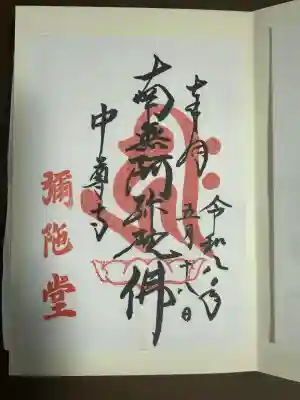 奉拝
令和八年
五月十八日
南無阿弥陀佛
中尊寺
彌陀堂